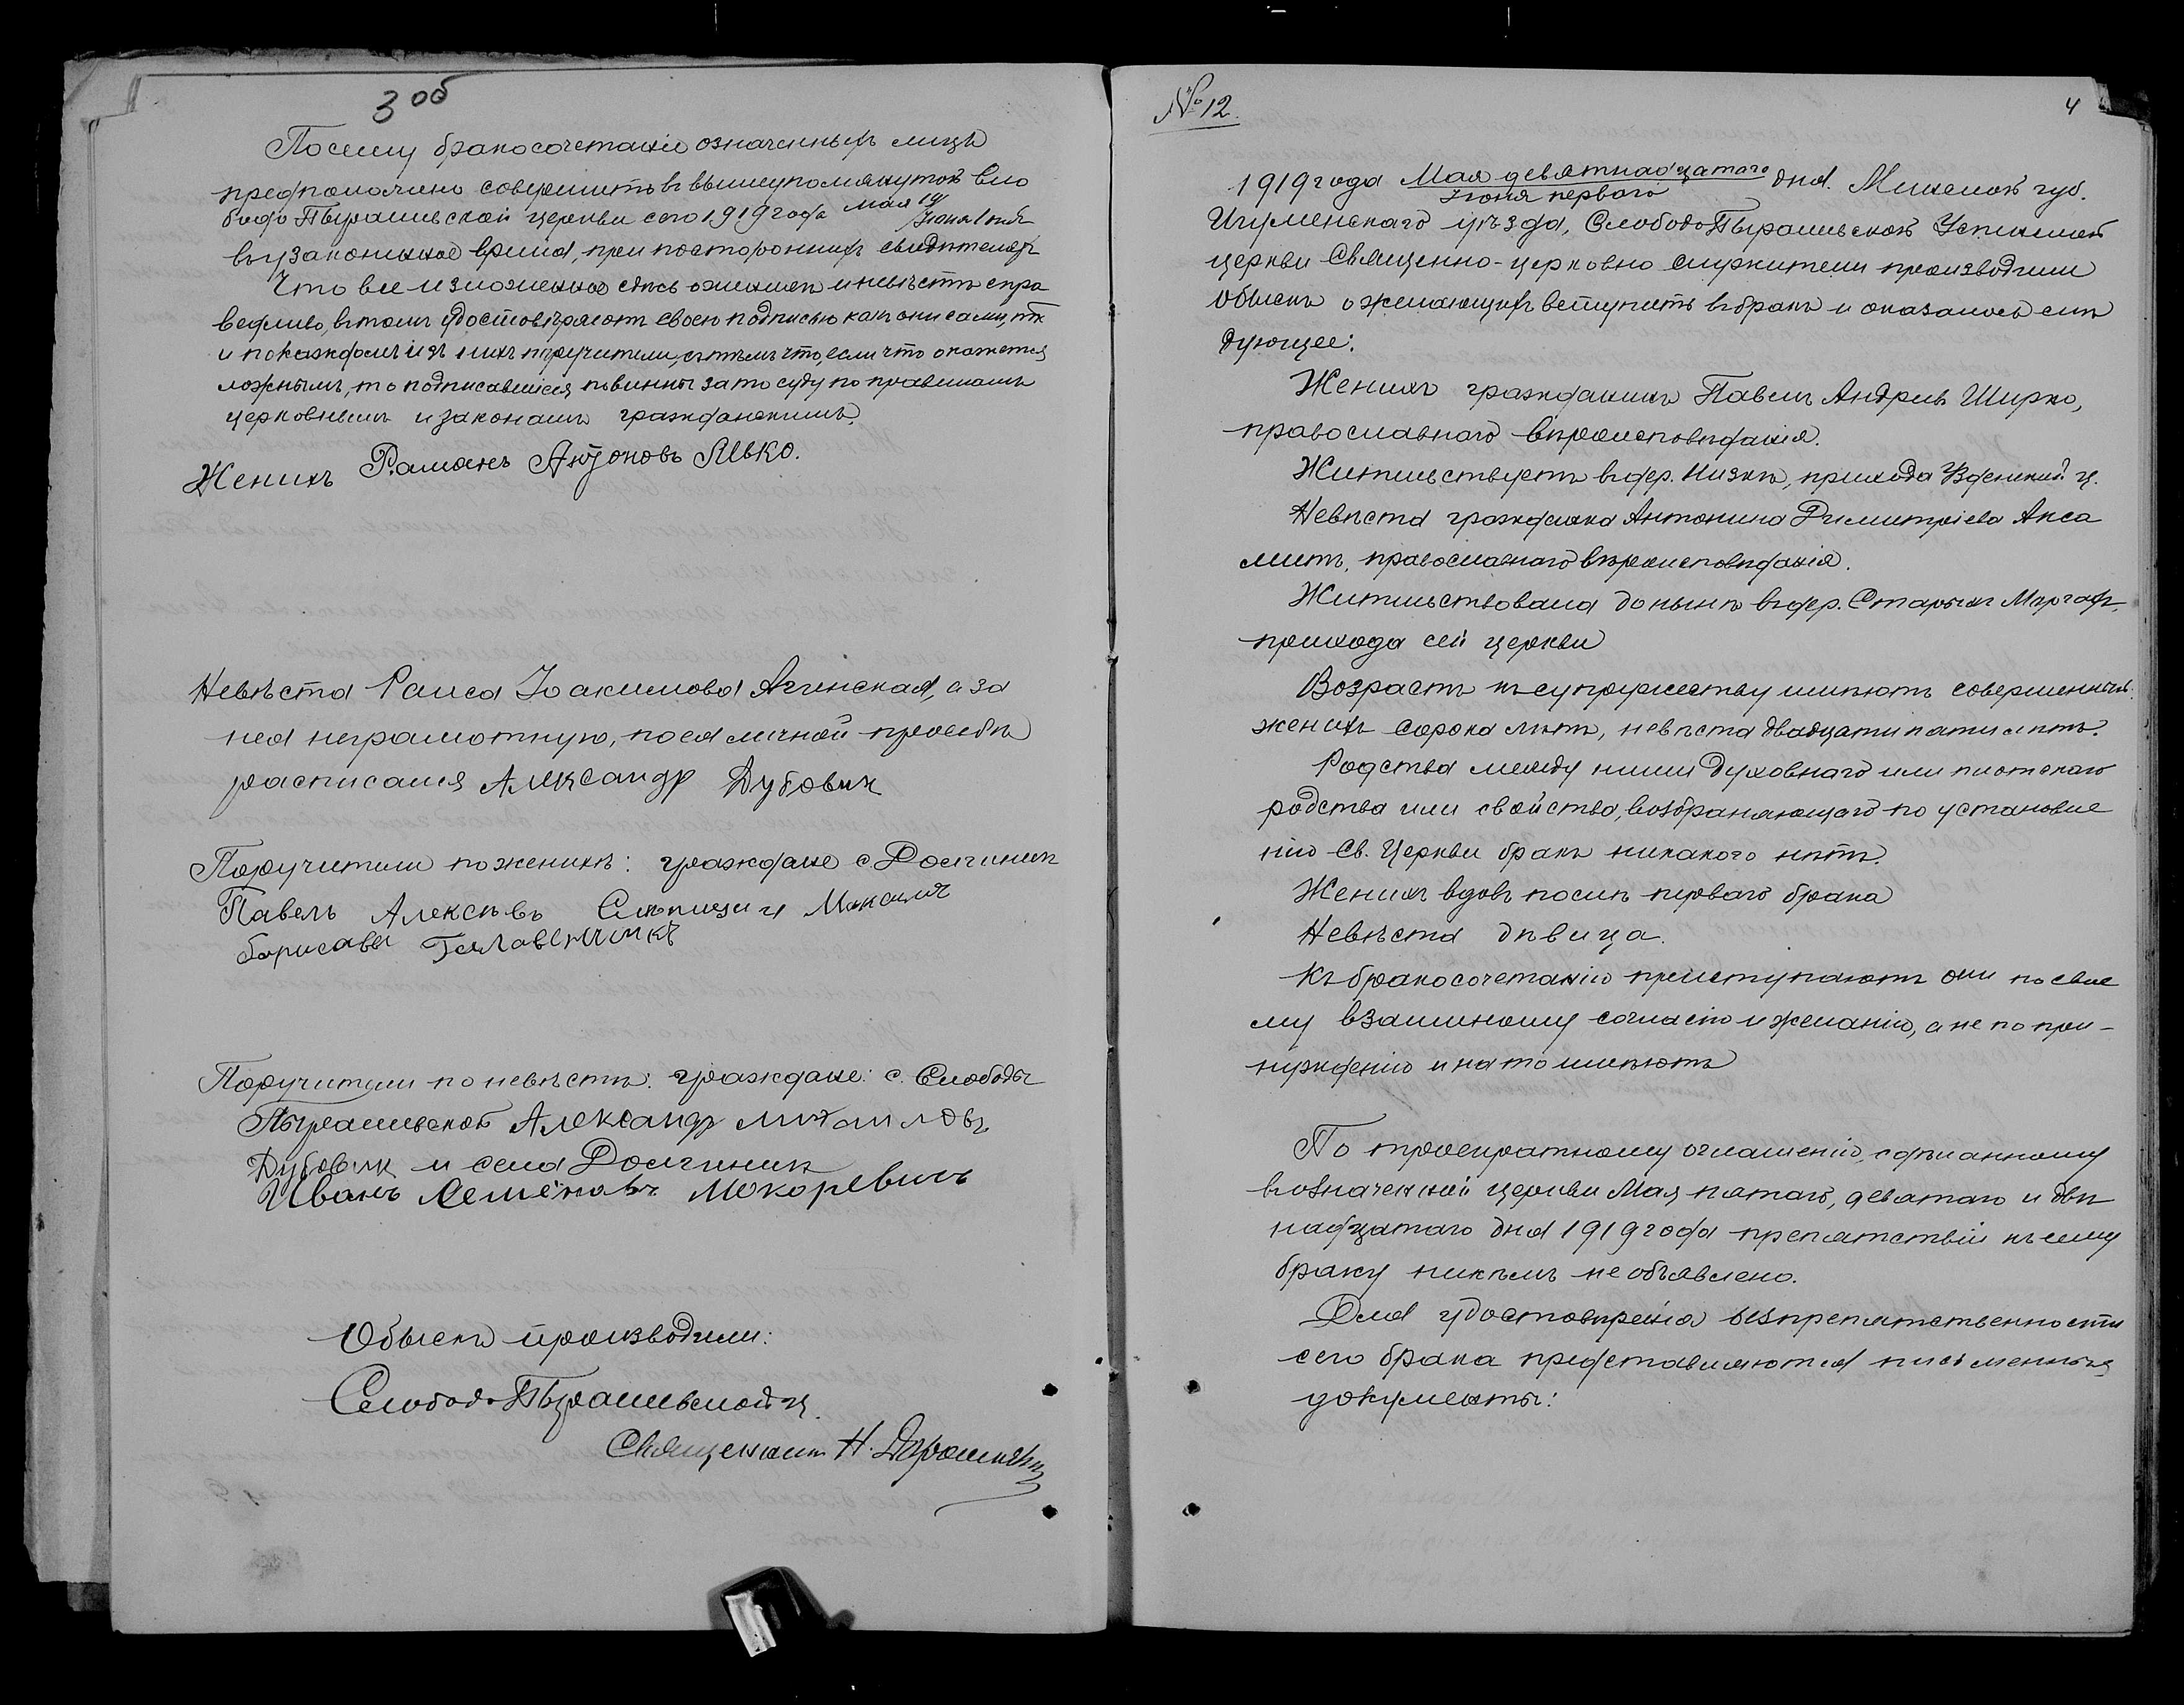 3 об
Посему бракосочетаніе означенныхъ лицъ
предположено совершить въ вышеупомянутой Сло
бодо Пырашевской церкви сего 1919 года мая 19/Іюня 1 дня
въ узаконенное время, при постороннихъ свидѣтеляхъ
Что все изложенное здѣсь о женихѣ и невѣстѣ спра
ведливо, въ томъ удостовѣряютъ своею подписью какъ они сами, такъ
и по каждомъ изъ нихъ поручители, съ тѣмъ что, если что окажется
ложнымъ, то подписавшіеся повинны за то суду по правиламъ
церковнымъ и законамъ гражданскимъ.
Женихъ Раманъ Антоновъ Ялько.
Невѣста Раиса Іоакимова Агинская, а за
нея неграмотную, по ея личной просьбѣ
расписался Александр Дубовик
Поручители по женихѣ: граждане с. Долгиник
Павелъ Алексѣевъ и Максимъ
борисавы Галавенчикъ
Поручители по невѣстѣ: граждане: с. Слободы
Пырашевской Александр михаиловъ
Дубовик и села Долгиник
Иванъ Семёнавъ Мокоревичъ
Обыскъ производили:
Слободо-Пырашевской ц.
Священникъ Н.
№ 12.
4
1919 года Мая девятнадцатаго дня. Минской губ.
Іюня перваго
Игуменскаго уѣзда, Слободо Пырашевской Успенской
церкви Священно-церковно служители производили
обыскъ о желающихъ вступить въ бракъ и оказалось слѣ
дующее:
Женихъ гражданинъ Павелъ Андреевъ Ширко,
православнаго вѣроисповѣданія.
Жительствуетъ въ дер. Низкѣ, прихода Узденской ц.
Невѣста гражданка Антонина Димитріева Акса
митъ, православнаго вѣроисповѣданія.
Жительствовала донынѣ въ дер. Старыхъ
прихода сей церкви
Возрастъ къ супружеству имѣютъ совершенный:
женихъ сорока лѣтъ, невѣста двадцати пяти лѣтъ.
Родства между ними духовнаго или плотскаго
родства или свойства, возбраняющаго по установле
нію Св. Церкви бракъ никакого нѣтъ.
Женихъ вдовъ послѣ перваго брака
Невѣста дѣвица.
Къ бракосочетанію приступаютъ они по свое
му взаимному согласію и желанію, а не по при-
нужденію и на то имѣютъ
По троекратному оглашенію, сдѣланному
въ означенной церкви Мая пятаго, девятаго и двѣ
надцатаго дня 1919 года препятствій къ сему
браку никѣмъ не объявлено.
Для удостовѣренія безпрепятственности
сего брака представляются письменныя
документы: